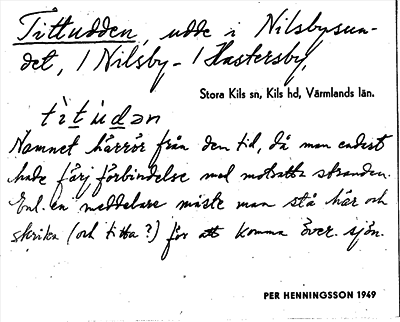 Tittudden, udde i Nilsbysun-
det, 1 Nilsby - 1 Hastersby,
Stora Kils sn, Kils hd, Värmlands län.
titudən
Namnet härrör från den tid, då man endast
hade färjförbindelse med motsatta stranden.
Enl. en meddelare måste man stå här och
skrika (och titta?) för att komma över sjön.
PER HENNINGSSON 1949